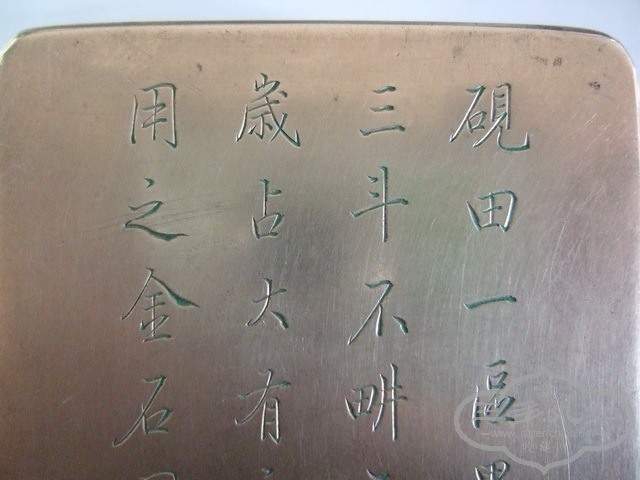 硯田一區
三斗不畊
歲占大有
用之金石